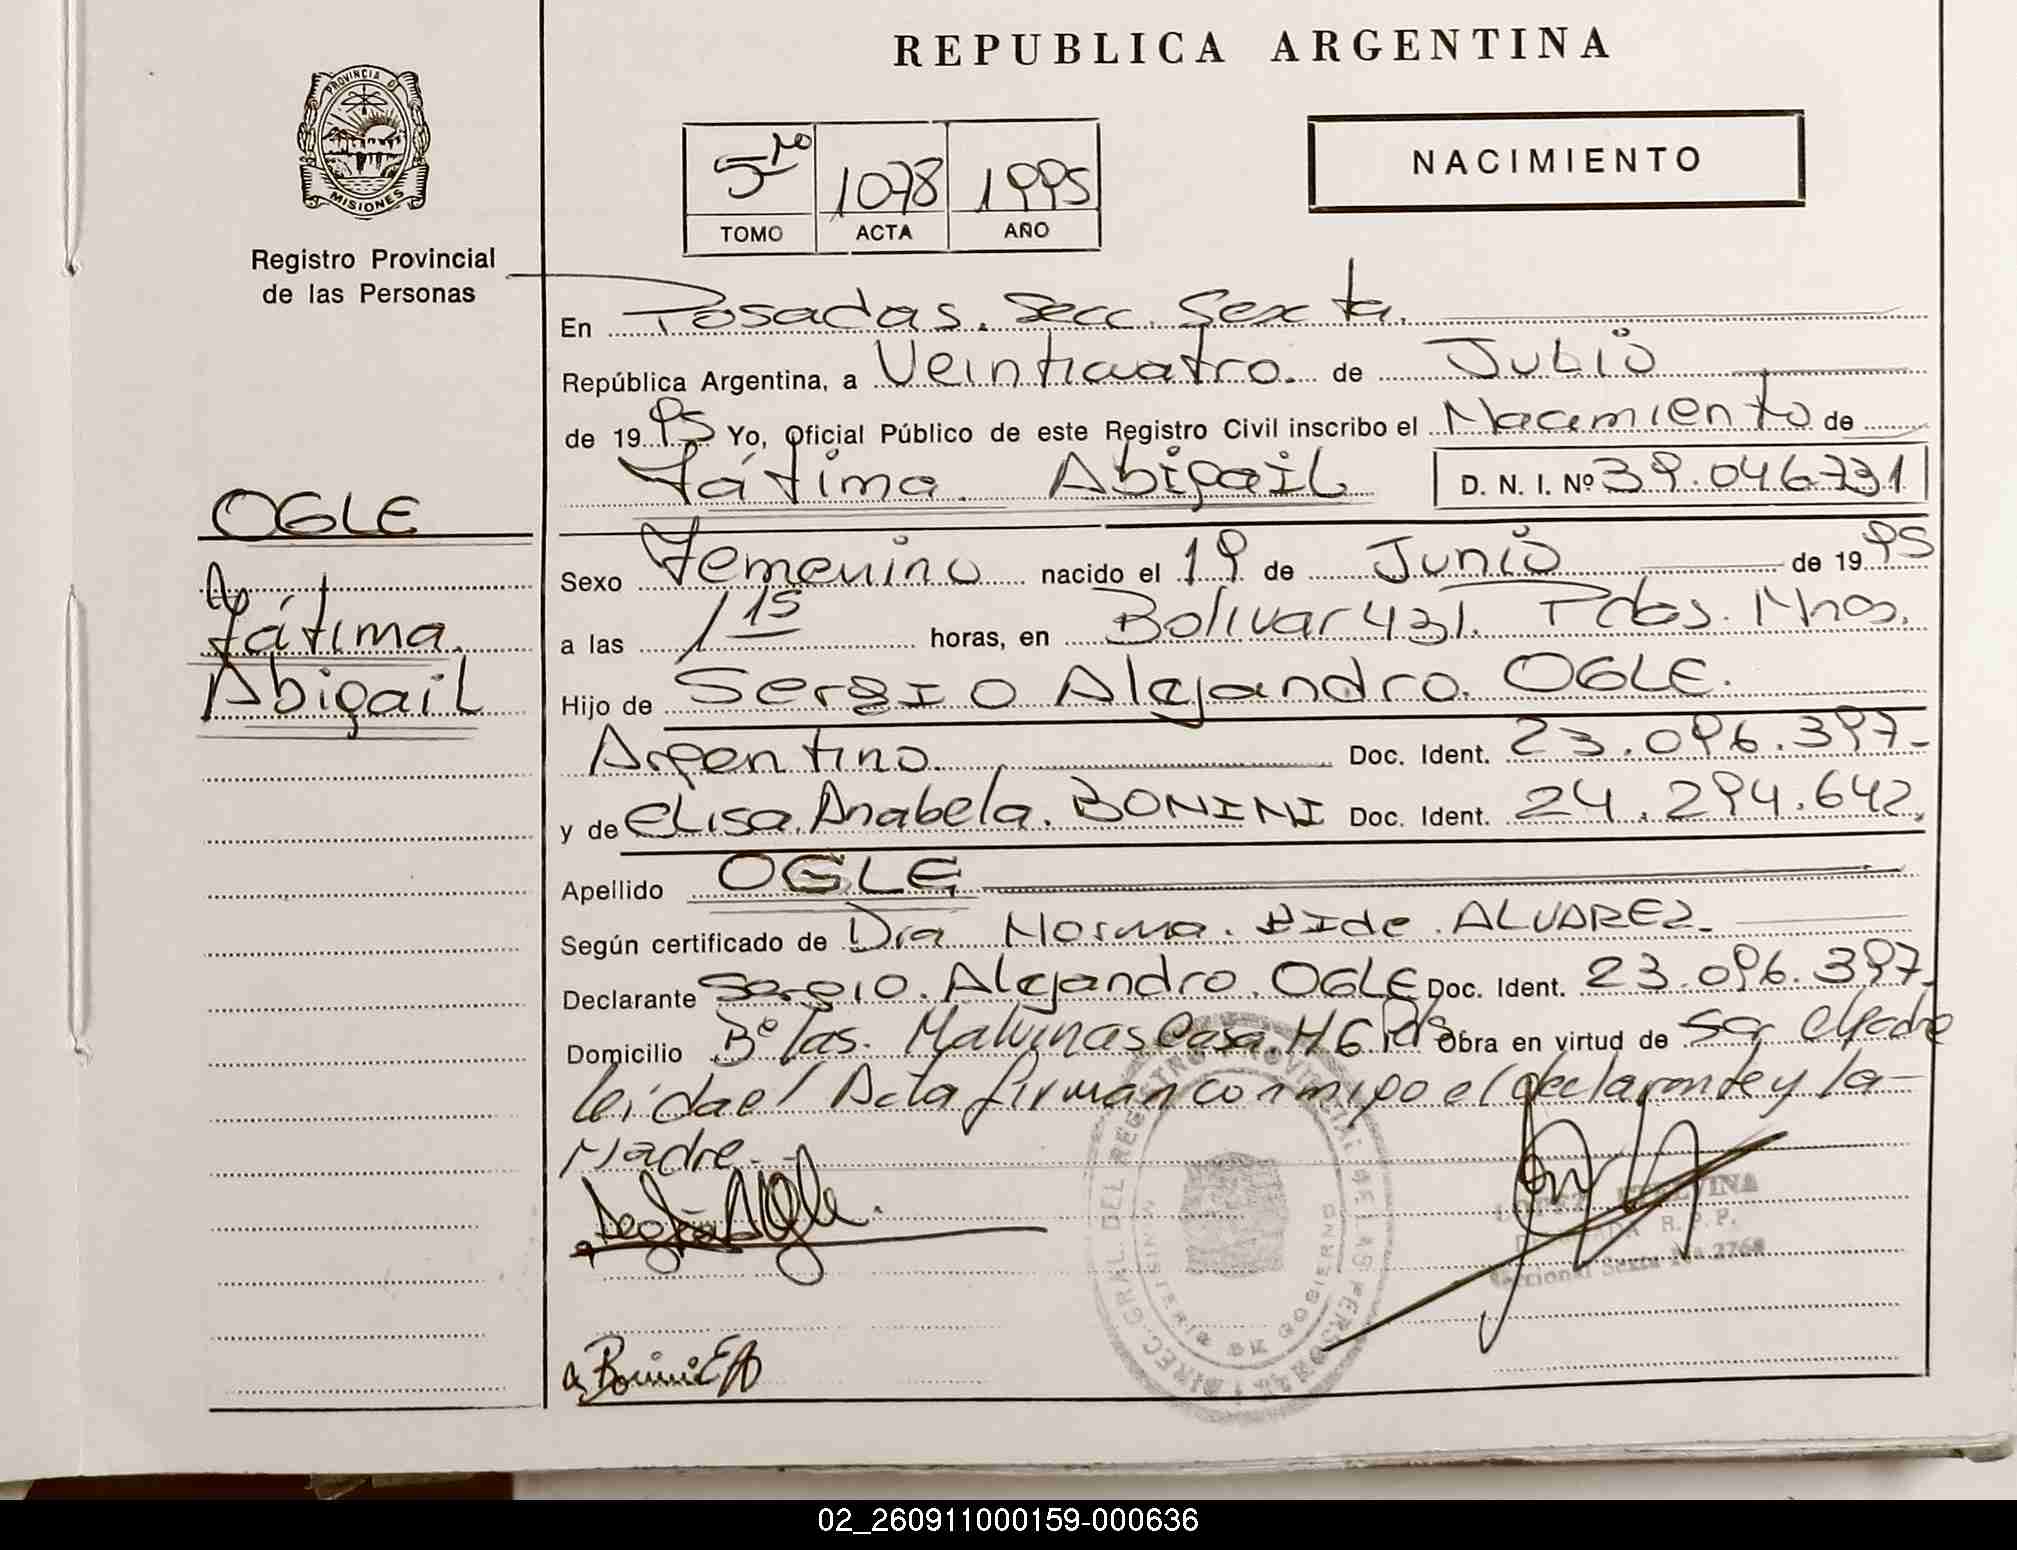 REPUBLICA ARGENTINA
PROVINCIA D
MISIONES
Registro Provincial
de las Personas
5to 1078 1995
TOMO ACTA AÑO
NACIMIENTO
En Posadas. Secc. Sexta.
República Argentina, a Veinticuatro. de Julio
de 1995 Yo, Oficial Público de este Registro Civil inscribo el Nacimiento de
Fátima Abigail D. N. I. Nº 39.046.731
OGLE
Fátima.
Abigail
Sexo Femenino nacido el 19 de Junio de 1995
a las 1 15 horas, en Bolivar 431. Pdas. Mnes.
Hijo de Sergio Alejandro. OGLE.
Argentino. Doc. Ident. 23.096.397-
y de Elisa. Anabela. BONINI Doc. Ident. 24.294.642.
Apellido OGLE
Según certificado de Dra Norma. Hide. ALVAREZ.
Declarante Sergio. Alejandro. OGLE Doc. Ident. 23.096.397.
Domicilio Bº las. Malvinas Casa. H6 Pds Obra en virtud de ser el padre
leída el Acta firman conmigo el declarante y la
Madre.
BoniniEA
DIREC. GRAL. DEL REGISTRO PROVINCIAL DE LAS PERSONAS
MINISTERIO DE GOBIERNO
R. P. P.
Seccional Sexta Nº 2768
02_260911000159-000636